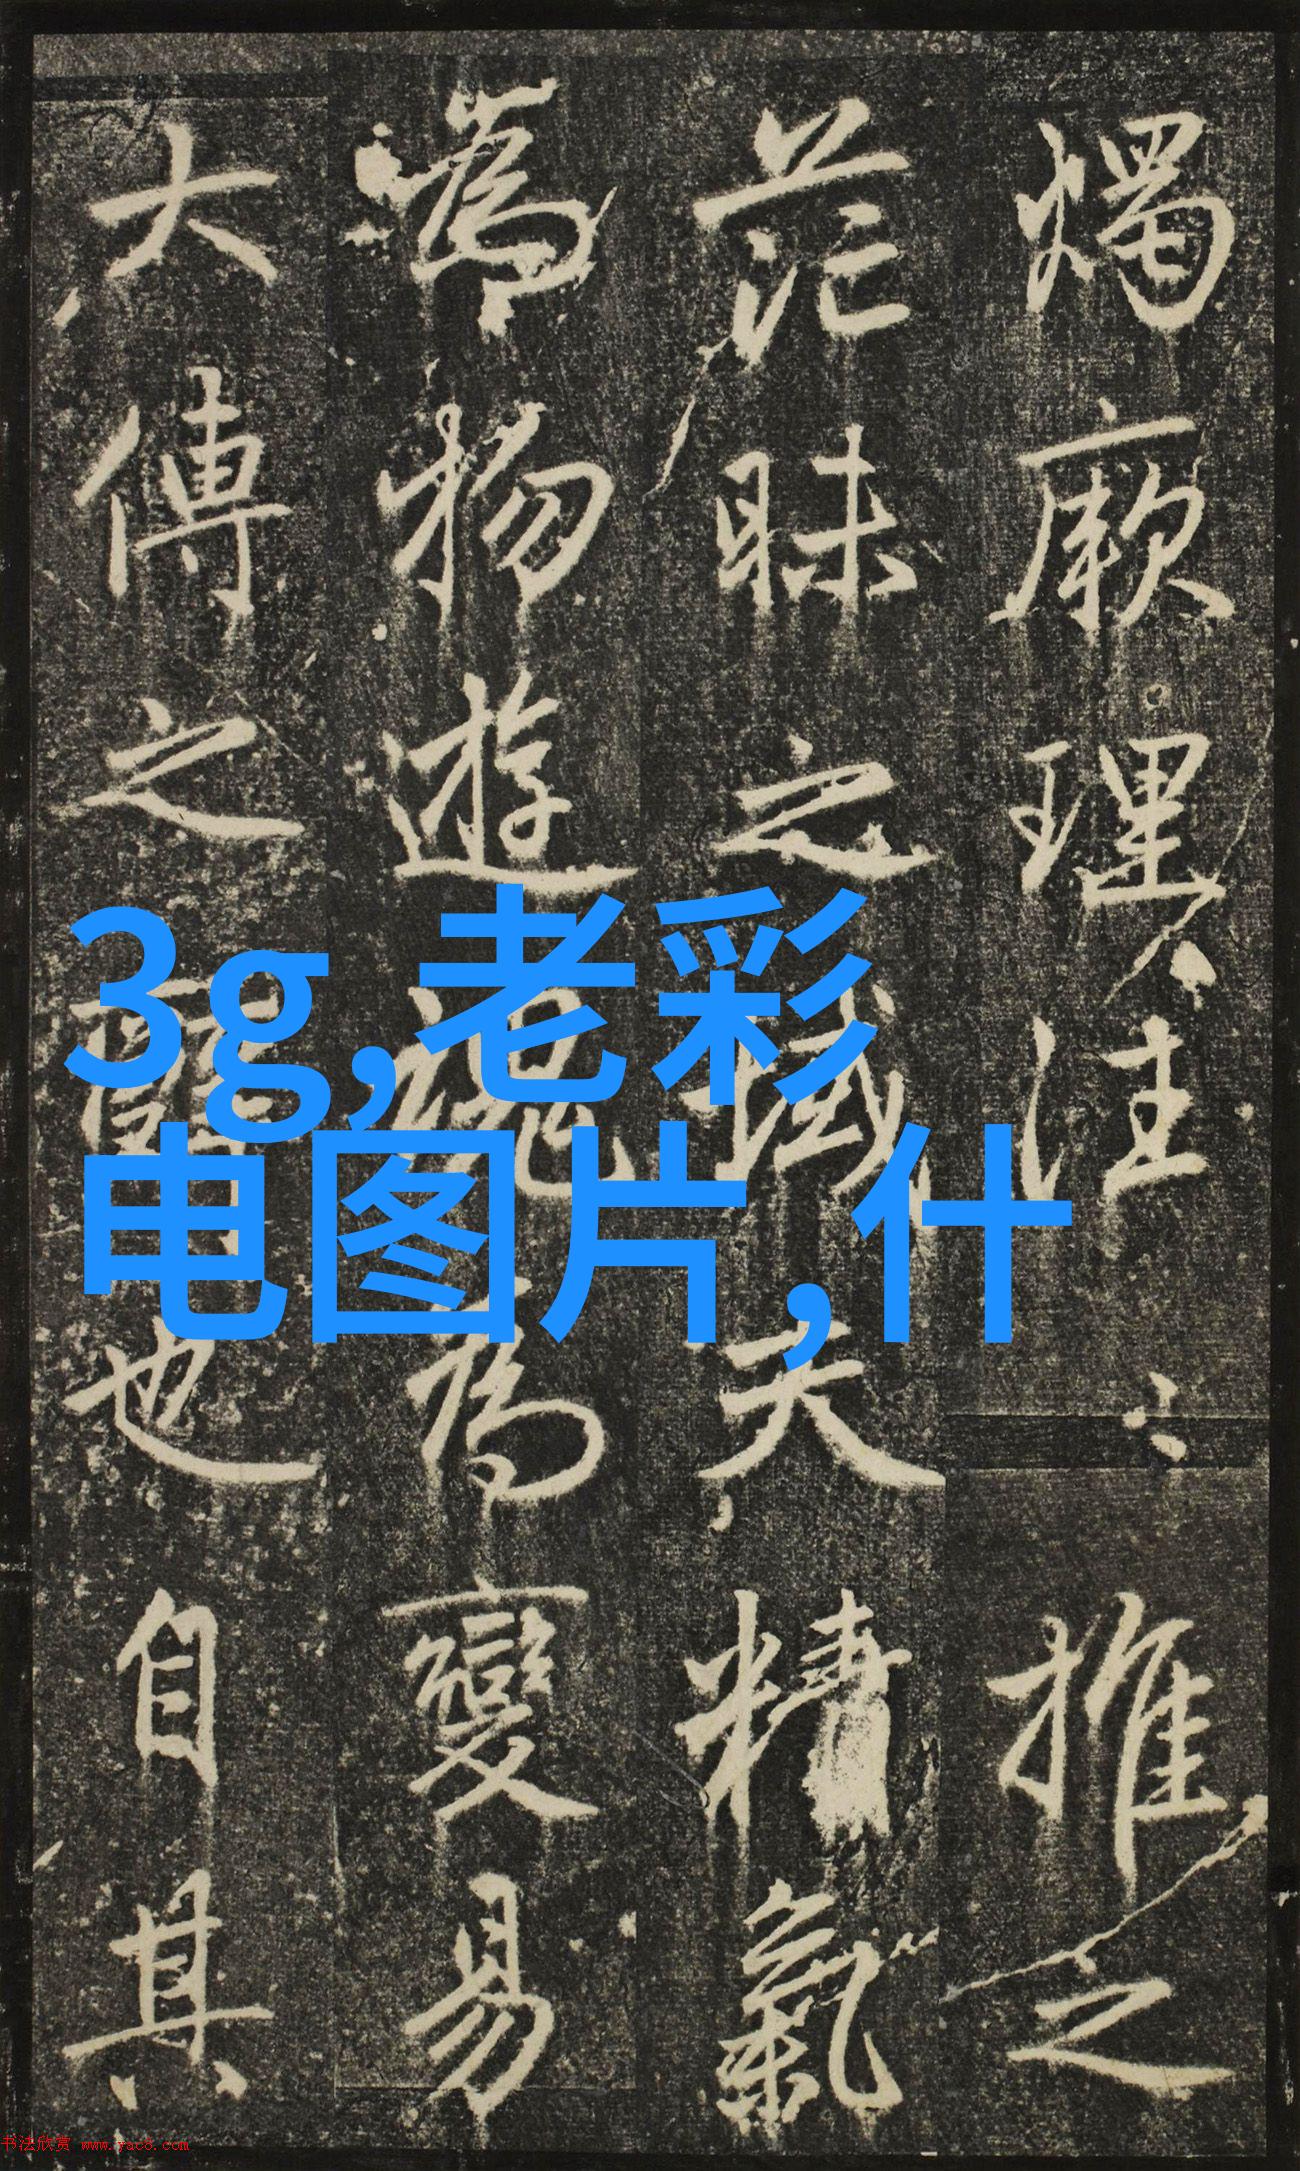 燭厥理法推之
茫昧之域夫精氣
為物遊魂為變易
大傳之體也自其
3g,老彩
电图片,什
书法欣赏 www.yac8.com